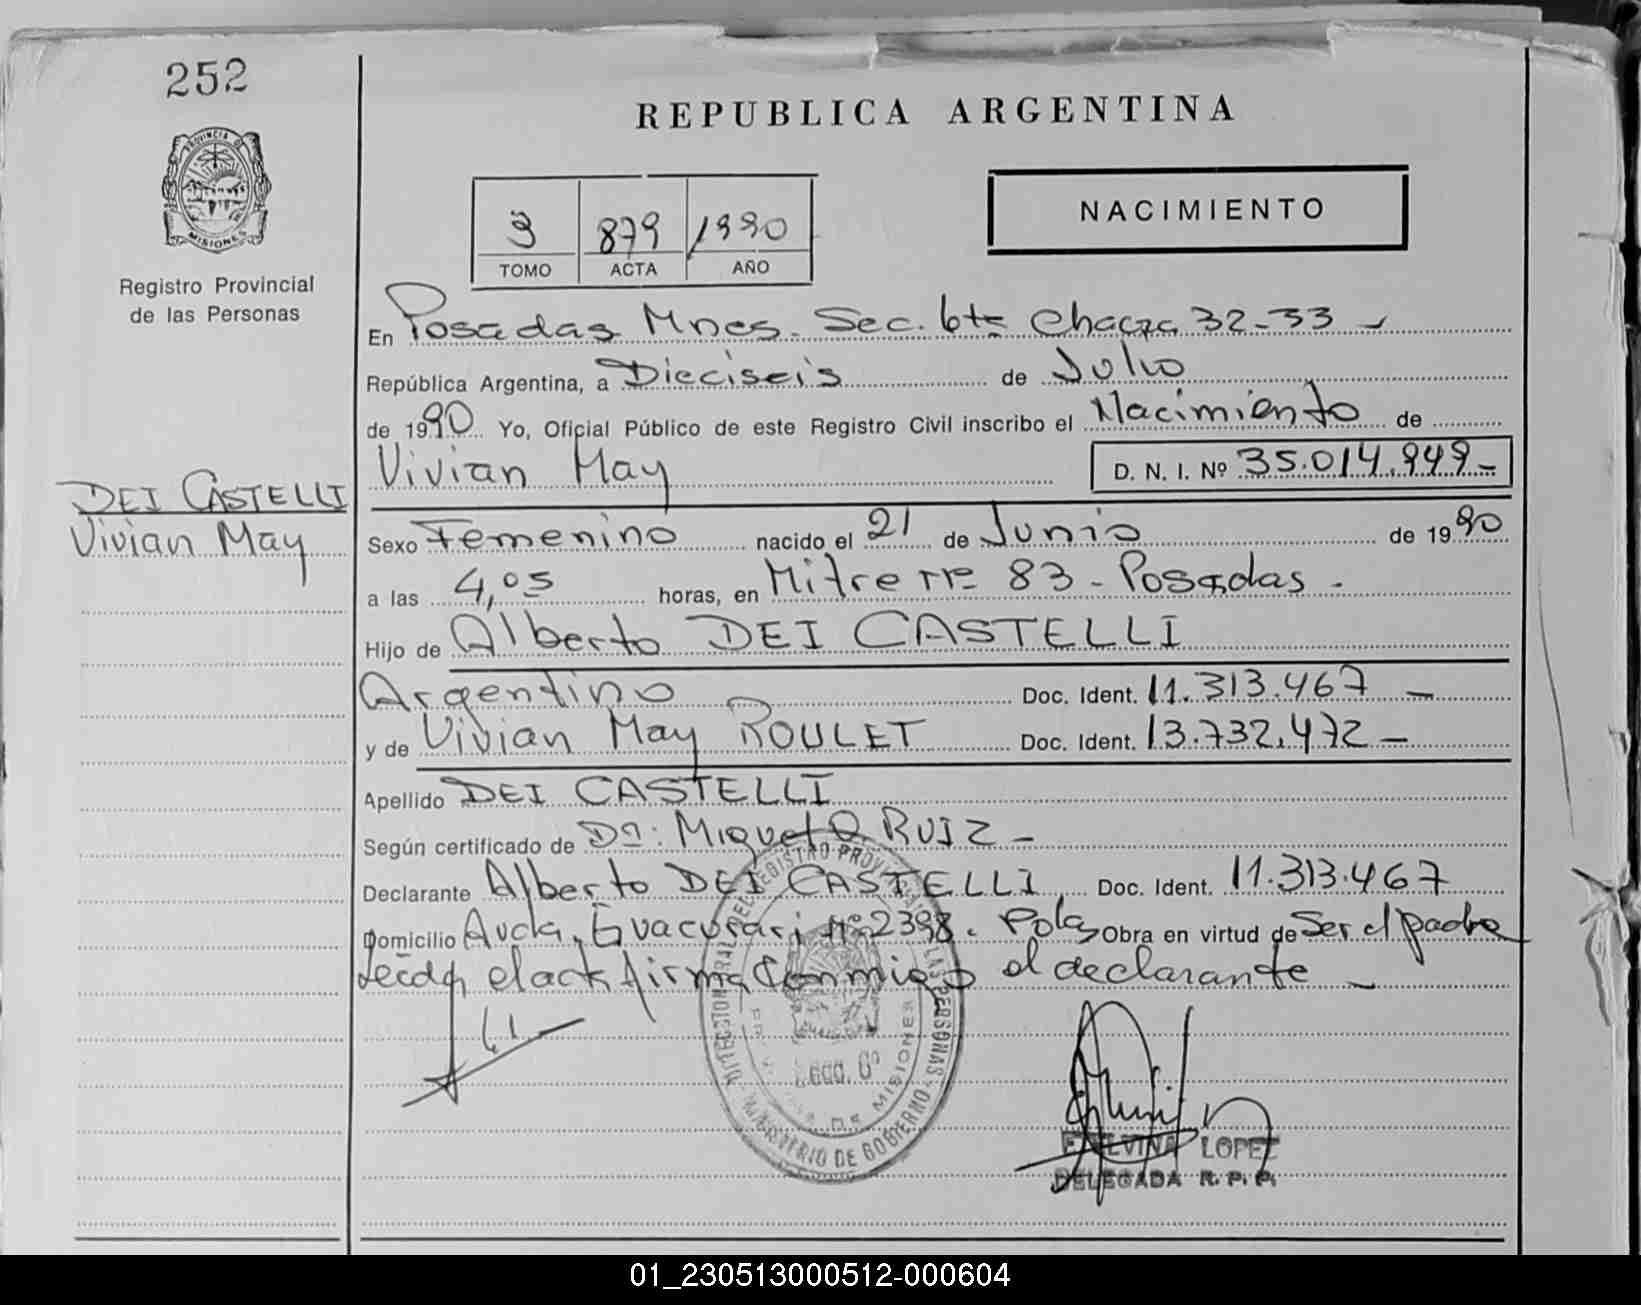 252
REPUBLICA ARGENTINA
PROVINCIA DE
MISIONES
Registro Provincial
de las Personas
3 879 1990
TOMO ACTA AÑO
NACIMIENTO
En Posadas Mnes. Sec. 6ta Chacra 32-33
República Argentina, a Dieciseis de Julio
de 1990 Yo, Oficial Público de este Registro Civil inscribo el Nacimiento de
Vivian May D. N. I. Nº 35.014.949
DEI CASTELLI
Vivian May
Sexo Femenino nacido el 21 de Junio de 1990
a las 4,05 horas, en Mitre nº 83 - Posadas.
Hijo de Alberto DEI CASTELLI
Argentino Doc. Ident. 11.313.467
y de Vivian May ROULET Doc. Ident. 13.732.472
Apellido DEI CASTELLI
Según certificado de Dr. Miguel A RUIZ
Declarante Alberto DEI CASTELLI Doc. Ident. 11.313.467
Domicilio Avda. Guacurari nº 2398. Pdas Obra en virtud de Ser el padre
Leida el acta firma conmigo el declarante
DIRECCION GRAL. DEL REGISTRO PROVINCIAL DE LAS PERSONAS
MINISTERIO DE GOBIERNO
PROVINCIA DE MISIONES
Secc. 6º
ELVINA LOPEZ
DELEGADA R. P. P.
01_230513000512-000604